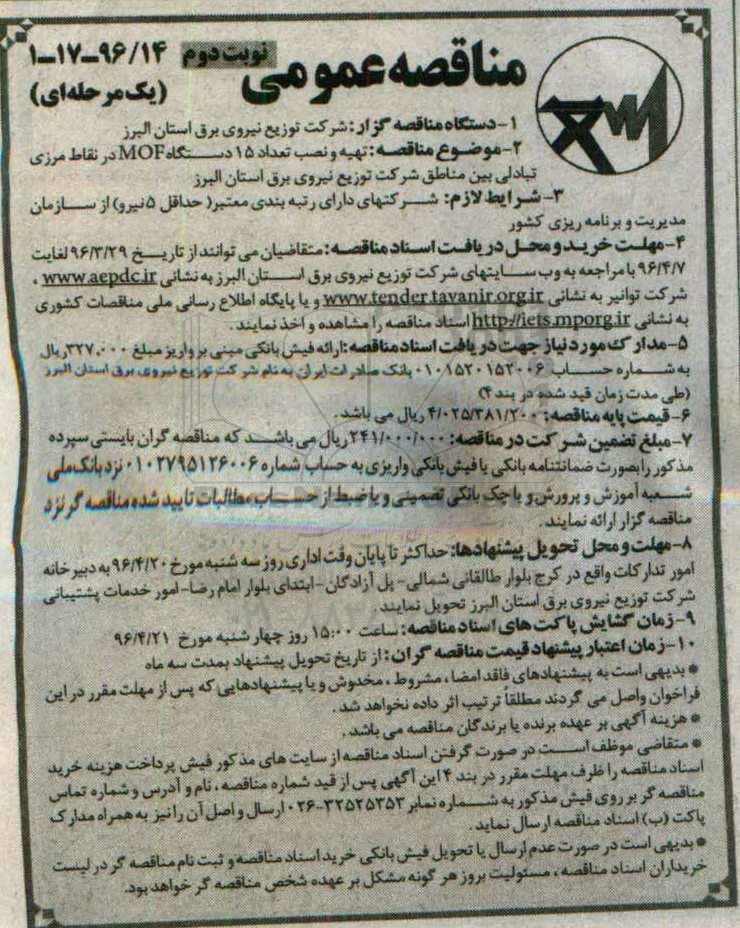 مناقصه عمومی
نوبت دوم
۹۶/۱۴-۱۷-۱
(یک مرحله‌ای)
۱- دستگاه مناقصه گزار: شرکت توزیع نیروی برق استان البرز
۲- موضوع مناقصه: تهیه و نصب تعداد ۱۵ دستگاه MOF در نقاط مرزی
تبادلی بین مناطق شرکت توزیع نیروی برق استان البرز
۳- شرایط لازم: شرکتهای دارای رتبه بندی معتبر( حداقل ۵ نیرو) از سازمان
مدیریت و برنامه ریزی کشور
۴- مهلت خرید و محل دریافت اسناد مناقصه: متقاضیان می توانند از تاریخ ۹۶/۳/۲۹ لغایت
۹۶/۴/۷ با مراجعه به وب سایتهای شرکت توزیع نیروی برق استان البرز به نشانی www.aepdc.ir ،
شرکت توانیر به نشانی www.tender.tavanir.org.ir و یا پایگاه اطلاع رسانی ملی مناقصات کشوری
به نشانی http://iets.mporg.ir اسناد مناقصه را مشاهده و اخذ نمایند.
۵- مدارک مورد نیاز جهت دریافت اسناد مناقصه: ارائه فیش بانکی مبنی بر واریز مبلغ ۳۲۷,۰۰۰ ریال
به شماره حساب ۰۱۰۱۵۲۰۱۵۲۰۰۶ بانک صادرات ایران به نام شرکت توزیع نیروی برق استان البرز
(طی مدت زمان قید شده در بند ۴)
۶- قیمت پایه مناقصه: ۴/۰۲۵/۳۸۱/۲۰۰ ریال می باشد.
۷- مبلغ تضمین شرکت در مناقصه: ۲۴۱/۰۰۰/۰۰۰ ریال می باشد که مناقصه گران بایستی سپرده
مذکور را بصورت ضمانتنامه بانکی یا فیش بانکی واریزی به حساب شماره ۰۱۰۲۷۹۵۱۲۶۰۰۶ نزد بانک ملی
شعبه آموزش و پرورش و یا چک بانکی تضمینی و یا ضبط از حساب مطالبات تایید شده مناقصه گر نزد
مناقصه گزار ارائه نمایند.
۸- مهلت و محل تحویل پیشنهادها: حداکثر تا پایان وقت اداری روز سه شنبه مورخ ۹۶/۴/۲۰ به دبیرخانه
امور تدارکات واقع در کرج بلوار طالقانی شمالی- پل آزادگان- ابتدای بلوار امام رضا- امور خدمات پشتیبانی
شرکت توزیع نیروی برق استان البرز تحویل نمایند.
۹- زمان گشایش پاکت های اسناد مناقصه: ساعت ۱۵:۰۰ روز چهار شنبه مورخ ۹۶/۴/۲۱
۱۰- زمان اعتبار پیشنهاد قیمت مناقصه گران: از تاریخ تحویل پیشنهاد بمدت سه ماه
* بدیهی است به پیشنهادهای فاقد امضا، مشروط ، مخدوش و یا پیشنهادهایی که پس از مهلت مقرر در این
فراخوان واصل می گردند مطلقاً ترتیب اثر داده نخواهد شد.
* هزینه آگهی بر عهده برنده یا برندگان مناقصه می باشد.
* متقاضی موظف است در صورت گرفتن اسناد مناقصه از سایت های مذکور فیش پرداخت هزینه خرید
اسناد مناقصه را ظرف مهلت مقرر در بند ۴ این آگهی پس از قید شماره مناقصه ، نام و آدرس و شماره تماس
مناقصه گر بر روی فیش مذکور به شماره نمابر ۳۲۵۲۵۳۵۳-۰۲۶ ارسال و اصل آن را نیز به همراه مدارک
پاکت (ب) اسناد مناقصه ارسال نماید.
* بدیهی است در صورت عدم ارسال یا تحویل فیش بانکی خرید اسناد مناقصه و ثبت نام مناقصه گر در لیست
خریداران اسناد مناقصه ، مسئولیت بروز هر گونه مشکل بر عهده شخص مناقصه گر خواهد بود.